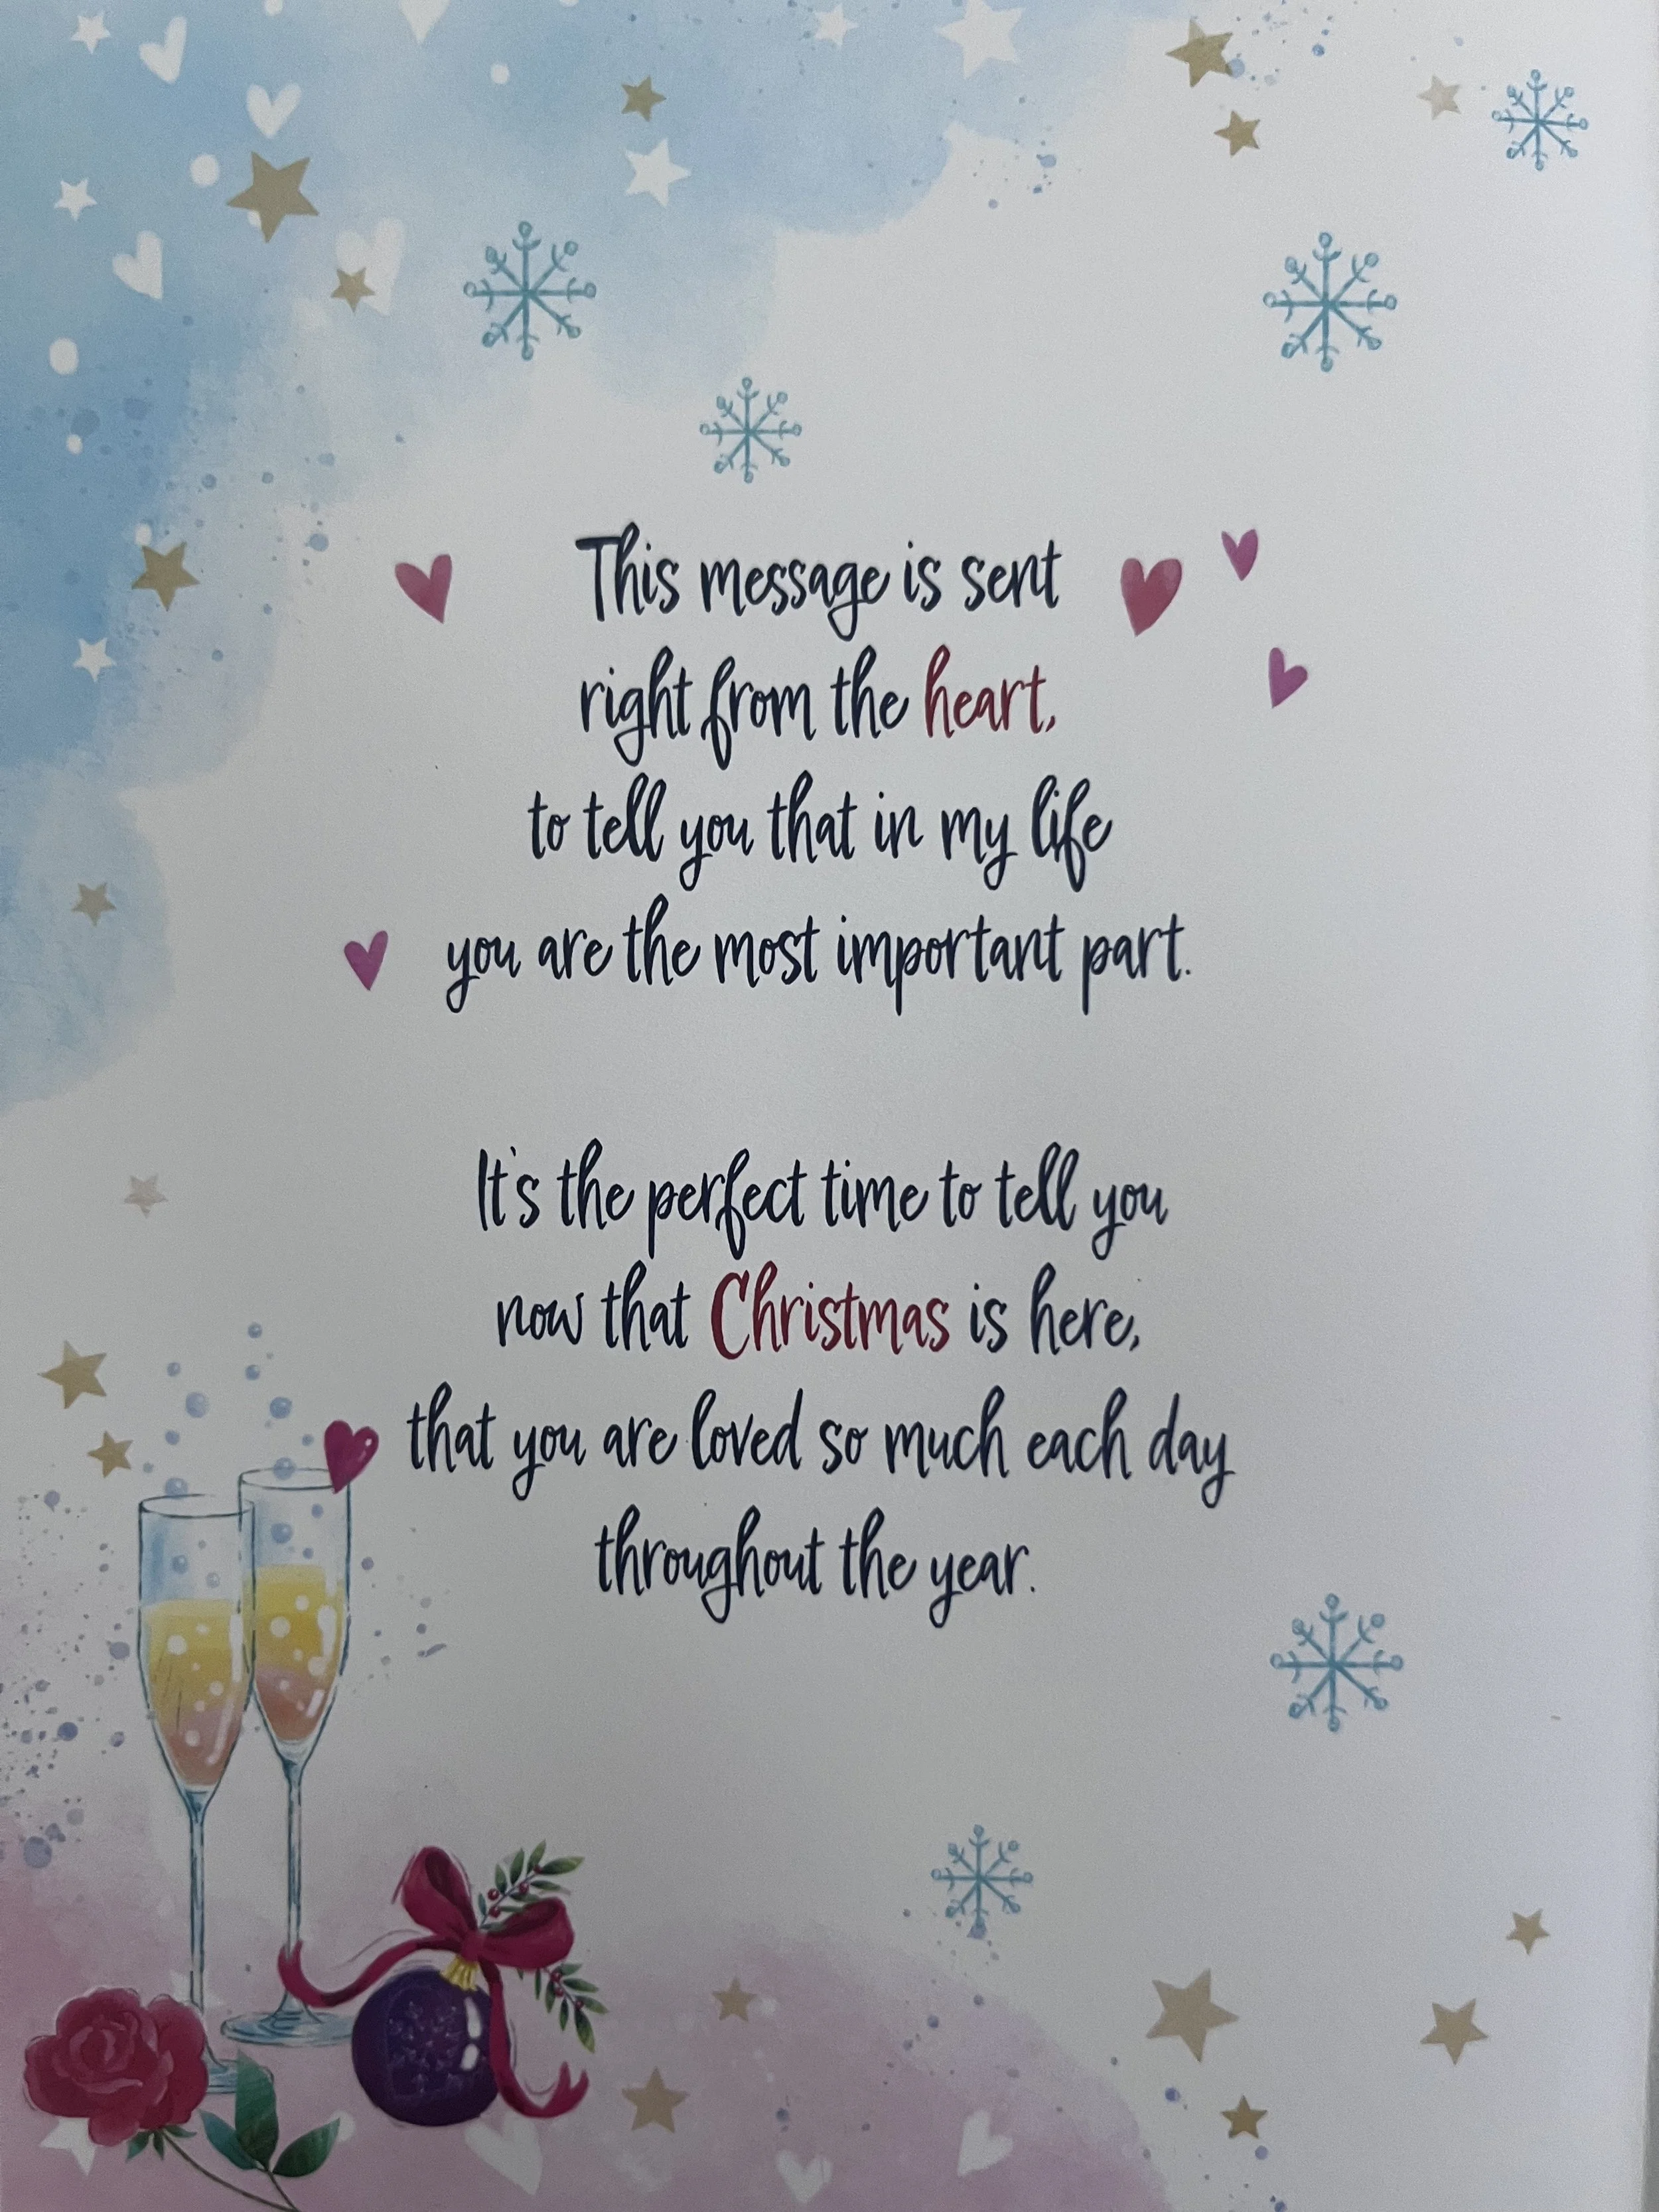 This message is sent
right from the heart,
to tell you that in my life
you are the most important part.
It's the perfect time to tell you
now that Christmas is here,
that you are loved so much each day
throughout the year.